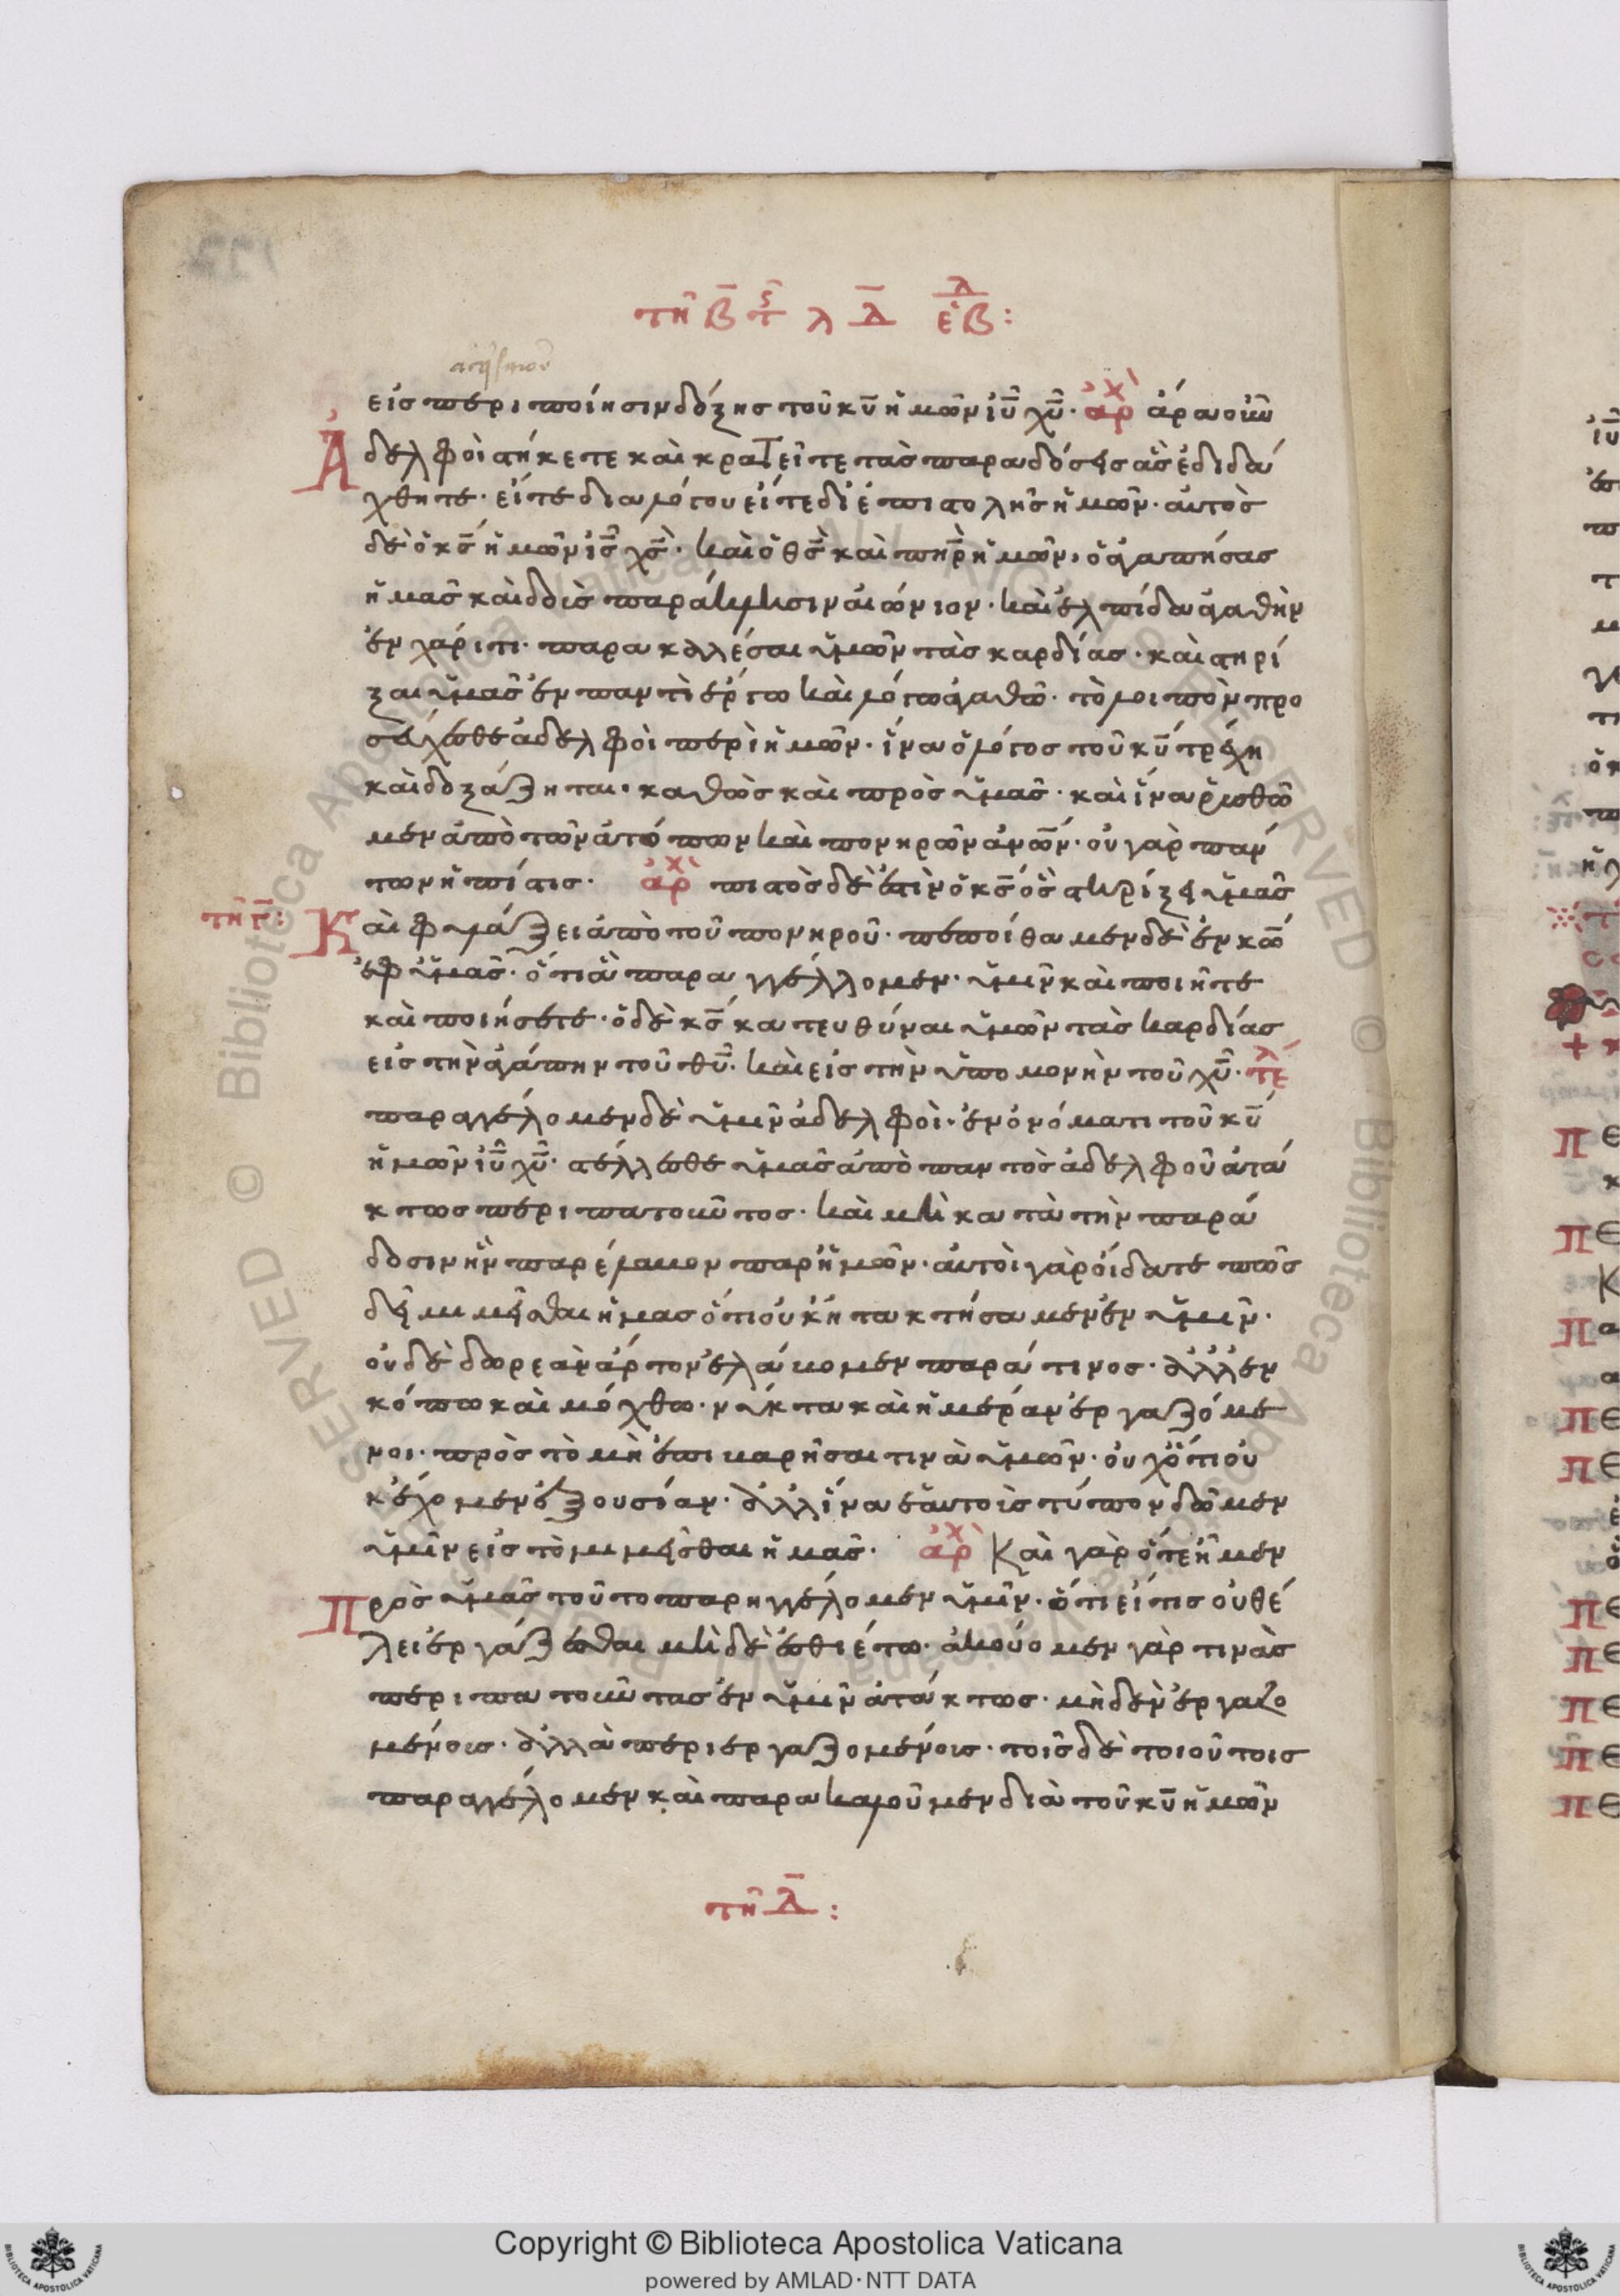 τῆ Β̄ τ ς̄ λ Δ̄ ἑβ λ:
εἰσ περιποίησιν δόξησ τοῦ κῡ ἡμῶν ἰῡ χῡ· ἀρχ ἄρα οὖν
Ἀδελφοὶ στήκετε καὶ κρατεῖτε τὰσ παραδόσεισ ἃσ ἐδιδά
χθητε· εἴτε δια λόγου εἴτε δἰ ἐπιστολῆσ ἡμῶν· ἀυτὸσ
δὲ ὁ κσ̄ ἡμῶν ἰσ̄ χσ̄· καὶ ὁ θσ̄ καὶ πηρ̄ ἡμῶν, ὁ ἀγαπήσασ
ἡμᾶσ καὶ δοὺσ παράκλησιν αἰώνιον· καὶ ἐλπίδα ἀγαθὴν
ἐν χάριτι· παρακαλέσαι ὑμῶν τὰσ καρδίασ· καὶ στηρί
ξαι ὑμᾶσ ἐν παντὶ ἔργω καὶ λόγω ἀγαθῶ· τὸ λοιπὸν προ
σέυχεσθε ἀδελφοὶ περὶ ἡμῶν· ἵνα ὁ λόγοσ τοῦ κῡ τρέχη
καὶ δοξάζηται· καθὼσ καὶ πρὸσ ὑμᾶσ· καὶ ἵνα ῥυσθῶ
μεν ἀπὸ τῶν ἀτόπων καὶ πονηρῶν ἀνῶν̄· οὐ γὰρ πάν
των ἡ πίστισ· ἀρχ πιστὸσ δὲ ἐστὶν ὁ κσ̄ ὃσ στηρίξει ὑμᾶσ
τῆ Γ̄: Καὶ φυλάξει ἀπὸ τοῦ πονηροῦ· πεποίθαμεν δὲ ἐν κῶ̄
ἐφ ὑμᾶσ· ὅτι ἃ παραγγέλλομεν· ὑμῖν καὶ ποιῆτε
καὶ ποιήσετε· ὁ δὲ κσ̄ κατευθύναι ὑμῶν τὰσ καρδίασ
εἰσ τὴν ἀγάπην τοῦ θῡ· καὶ εἰσ τὴν ὑπομονὴν τοῦ χῡ· τελ
παραγγέλομεν δὲ ὑμῖν ἀδελφοὶ· ἐν ὀνόματι τοῦ κῡ
ἡμῶν ἰῡ χῡ· στέλλεσθε ὑμᾶσ ἀπὸ παντὸσ ἀδελφοῦ ἀτά
κτωσ περιπατοῦντοσ· καὶ μὴ κατὰ τὴν παρά
δοσιν ἣν παρέλαβον παρ ἡμῶν· ἀυτοὶ γὰρ οἴδατε πῶσ
δεῖ μιμεῖσθαι ἡμασ ὅτι οὐκ ἠτακτήσαμεν ἐν ὑμῖν·
οὐδὲ δωρεὰν ἄρτον ἐλάβομεν παρά τινοσ· ἀλλ ἐν
κόπω καὶ μόχθω· νύκτα καὶ ἡμέραν ἐργαζόμε
νοι· πρὸσ τὸ μὴ ἐπιβαρῆσαι τινὰ ὑμῶν· οὐχ ὅτι οὐ
κ ἔχομεν ἐξουσίαν· ἀλλ ἵνα ἑαυτοὶσ τύπον δῶμεν
ὑμῖν εἰσ τὸ μιμεῖσθαι ἡμᾶσ· ἀρχ Καὶ γὰρ ὅτε ἦμεν
Πρὸσ ὑμᾶσ τοῦτο παρηγγέλομεν ὑμῖν· ὅτι εἴτισ οὐ θέ
λει ἐργάζεσθαι μὴ δὲ ἐσθιέτω· ἀκούομεν γὰρ τινὰσ
περιπατοῦντασ ἐν ὑμῖν ἀτάκτωσ· μὴδὲν ἐργαζο
μένουσ· ἀλλὰ περιεργαζομένουσ· τοῖσ δὲ τοιούτοισ
παραγγέλομεν καὶ παρακαλοῦμεν διὰ τοῦ κῡ ἡμῶν
τῆ Δ̄:
Copyright © Biblioteca Apostolica Vaticana
powered by AMLAD·NTT DATA